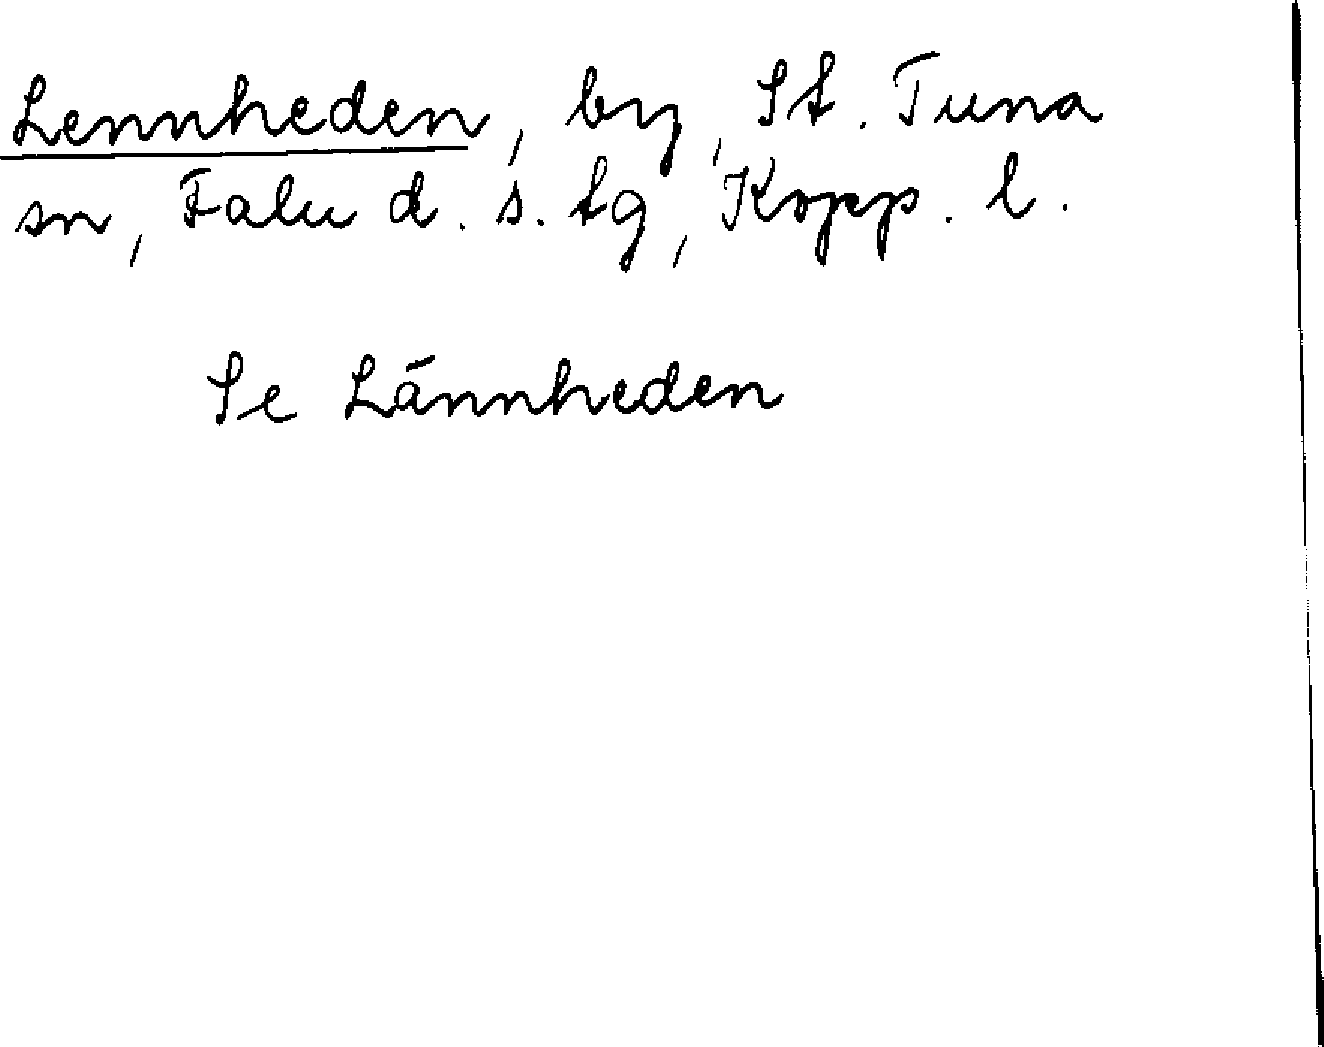 Lennheden, by, St. Tuna
sn, Falu d. s. tg, Kopp. l.
Se Lännheden